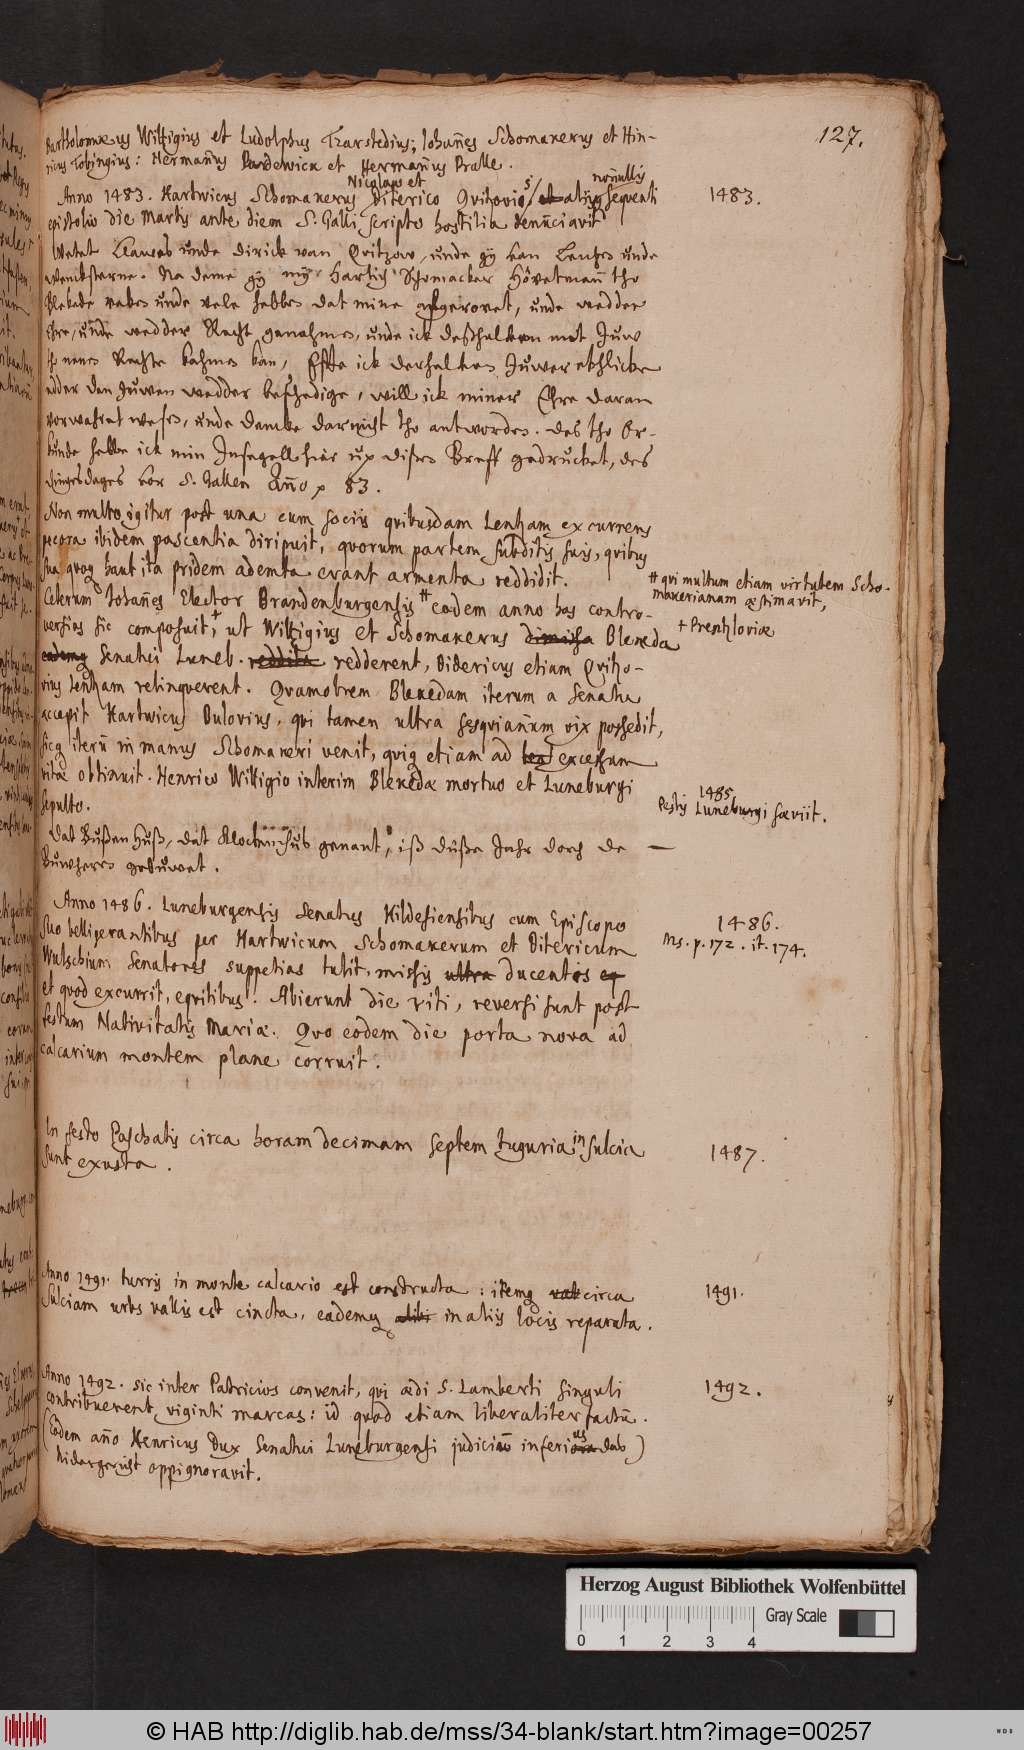 127.
Bartholomæus Witzigius et Ludolphus Garstedius; Iohañes Schomakerus et Hin-
ricus Tobingius: Hermañus Bardewick et Herrmañus Pralle.
Nicolao et
noñullis
Anno 1483. Hartwicus Schomakerus Diterico Qvitzoviis et aliis sequenti
1483.
epistola die Martis ante diem S. Galli scripto hostilia denuñciavit
Wetet Clawes unde Dirick van Qvitzow, unde gy van
Na deme gy my Hartich Schomacker Hövetmañ tho
Blekede vakes unde vele hebbes dat mine gerovet, unde wedder
Ehre, unde wedder Recht genahmes, unde ick deßhalven met Juw
tho nenes Rechte kahmes kan, Effte ick derhalves Juwer etzlicke
edder den Juwen wedder beschedige, will ick miner Ehre daran
vorwahret weses, unde darvor nicht tho antwordes. Des tho Or-
kunde hebbe ick min Insegell hier up dises Breff gedrucket, des
Dingesdages vor S. Gallen Año 83.
Non multo igitur post una cum sociis qvibusdam Lenham excurrens
pecora ibidem pascentia diripuit, qvorum partem subditis suis, qvibus
sua qvoq haut ita pridem ademta erant armenta reddidit.
# qvi multum etiam virtutem Scho-
makerianam æstimavit,
Ceterum Iohañes Elector Brandenburgensis # eodem anno has contro-
+ Prenzloviæ
versias sic composuit, + ut Witzigius et Schomakerus dimissa Blekeda
eademq Senatui Luneb. reddita redderent, Didericus etiam Qvitzo-
vius Lenham relinqverent. Qvamobrem Blekedam iterum a Senatu
accepit Hartwicus Bulovius, qvi tamen ultra sesqviañum vix possedit,
sicq iterũ in manus Schomakeri venit, qviq etiam ad excessum
vitæ obtinuit. Henrico Witzigio interim Blekedæ mortuo et Luneburgi
sepulto.
1485.
Pestis Luneburgi sæviit.
Dat Bußen Huß, dat Klocken hus genant, iß düße Jahr dorch de
Buwheres gebuwet.
Anno 1486. Luneburgensis Senatus Hildesiensibus cum Episcopo
1486.
Ms. p. 172. it. 174.
suo belligerantibus per Hartwicum Schomakerum et Ditericum
Wulschium Senatores suppetias tulit, missis ultra ducentis eq
et qvod excurrit, eqvitibus. Abierunt die Viti, reversi sunt post
festum Nativitatis Mariæ. Qvo eodem die porta nova ad
calcarium montem plane corruit.
In festo Paschatis circa horam decimam septem tuguria in Sulcia
1487.
sunt exusta.
Anno 1491. turris in monte calcario est constructa: itemq vak circa
1491.
Sulciam urbs vallis est cincta, eademq alibi in aliis locis reparata.
Anno 1492. sic inter Patricios convenit, qvi ædi S. Lamberti singuli
1492.
contribuerent viginti marcas: id qvod etiam liberaliter factũ.
(Eodem año Henricus Dux Senatui Luneburgensi judiciũ inferius das)
Nidergericht oppignoravit.
Herzog August Bibliothek Wolfenbüttel
Gray Scale
0 1 2 3 4
© HAB http://diglib.hab.de/mss/34-blank/start.htm?image=00257
WDB